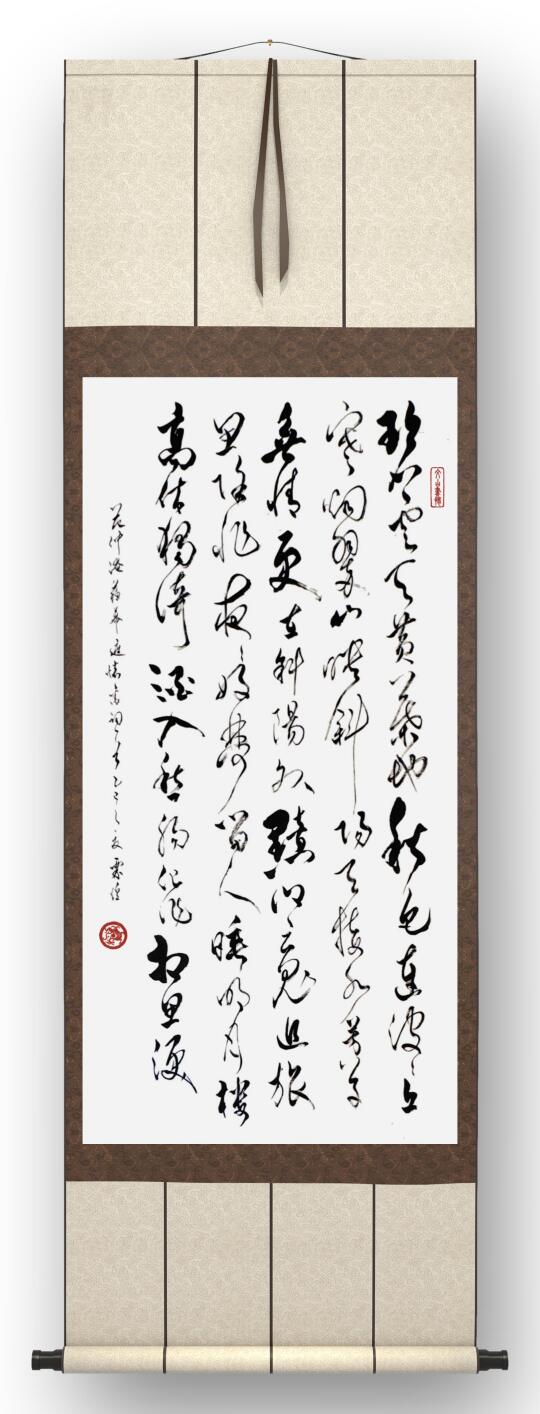 碧雲天黃葉地秋色連波々上
寒煙翠山映斜陽天接水芳草
無情更在斜陽外黯鄉魂追旅
思除非夜々好夢留人睡明月樓
高休獨倚酒入愁腸化作相思淚
范仲淹蘇幕遮懷舊詞一首